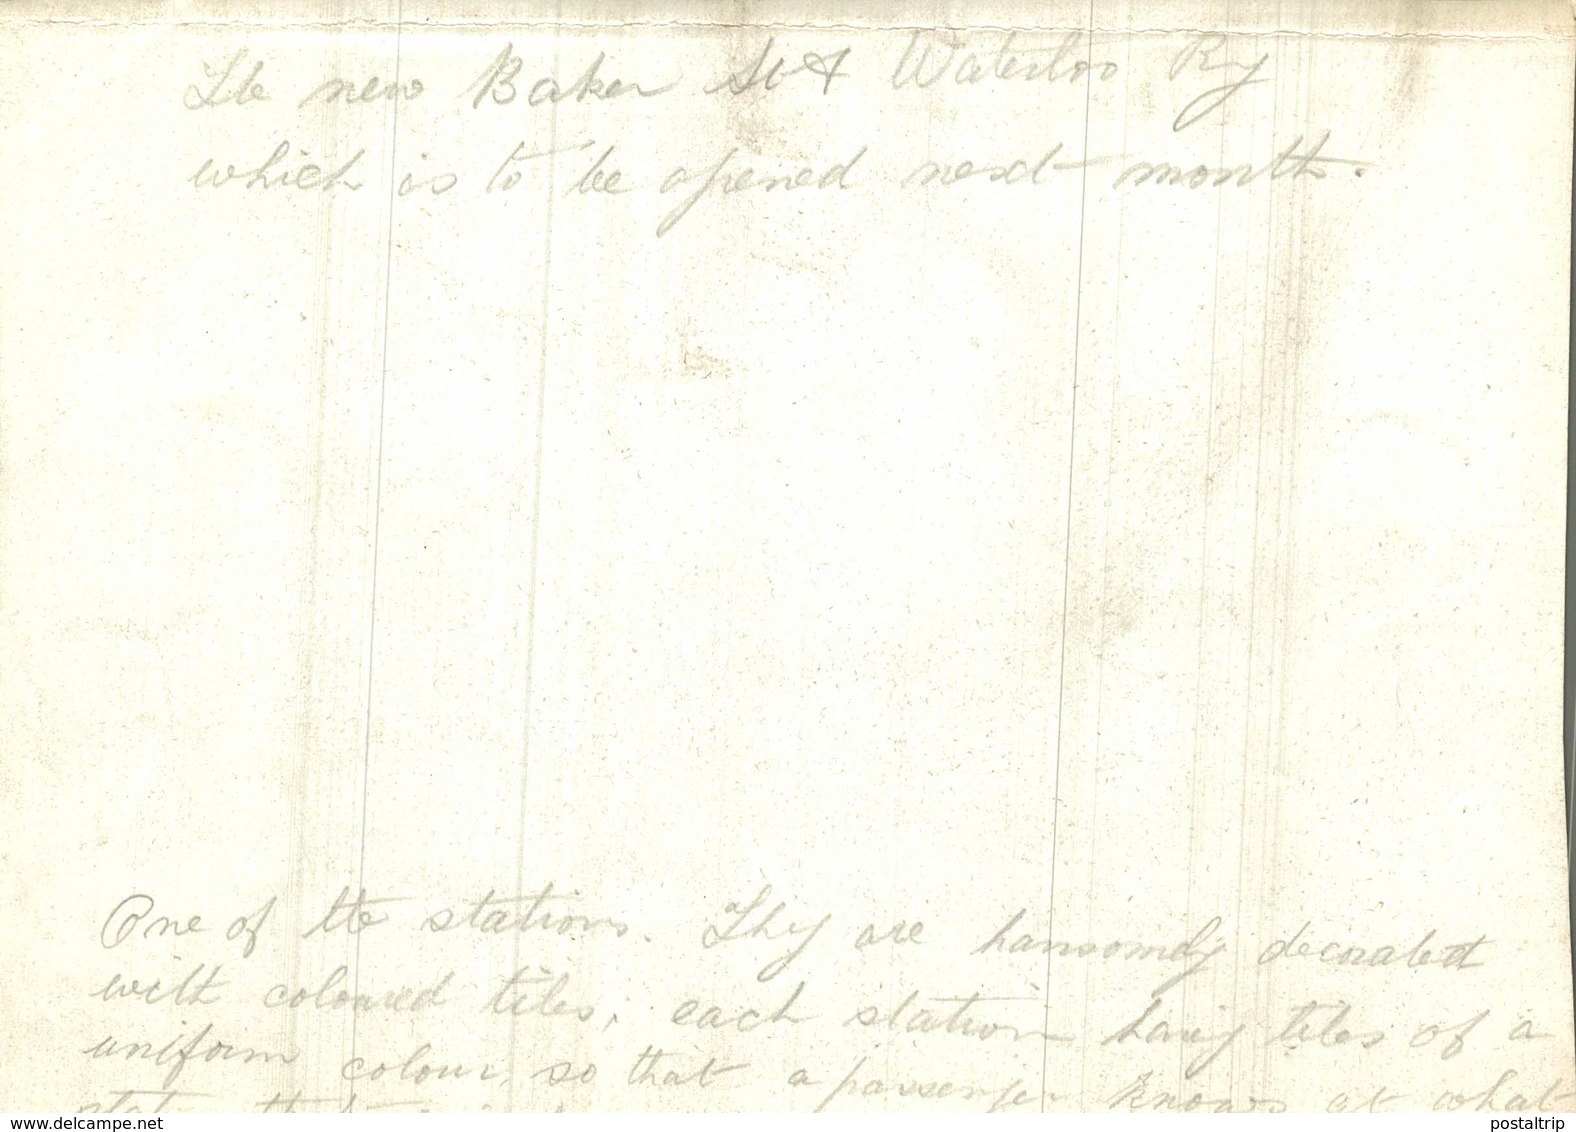 The new Baker St & Waterloo Ry
which is to be opened next month.
One of the stations. They are hansomely decorated
with coloured tiles, each station having tiles of a
uniform colour, so that a passenger knows at what
www.delcampe.net
postaltrip